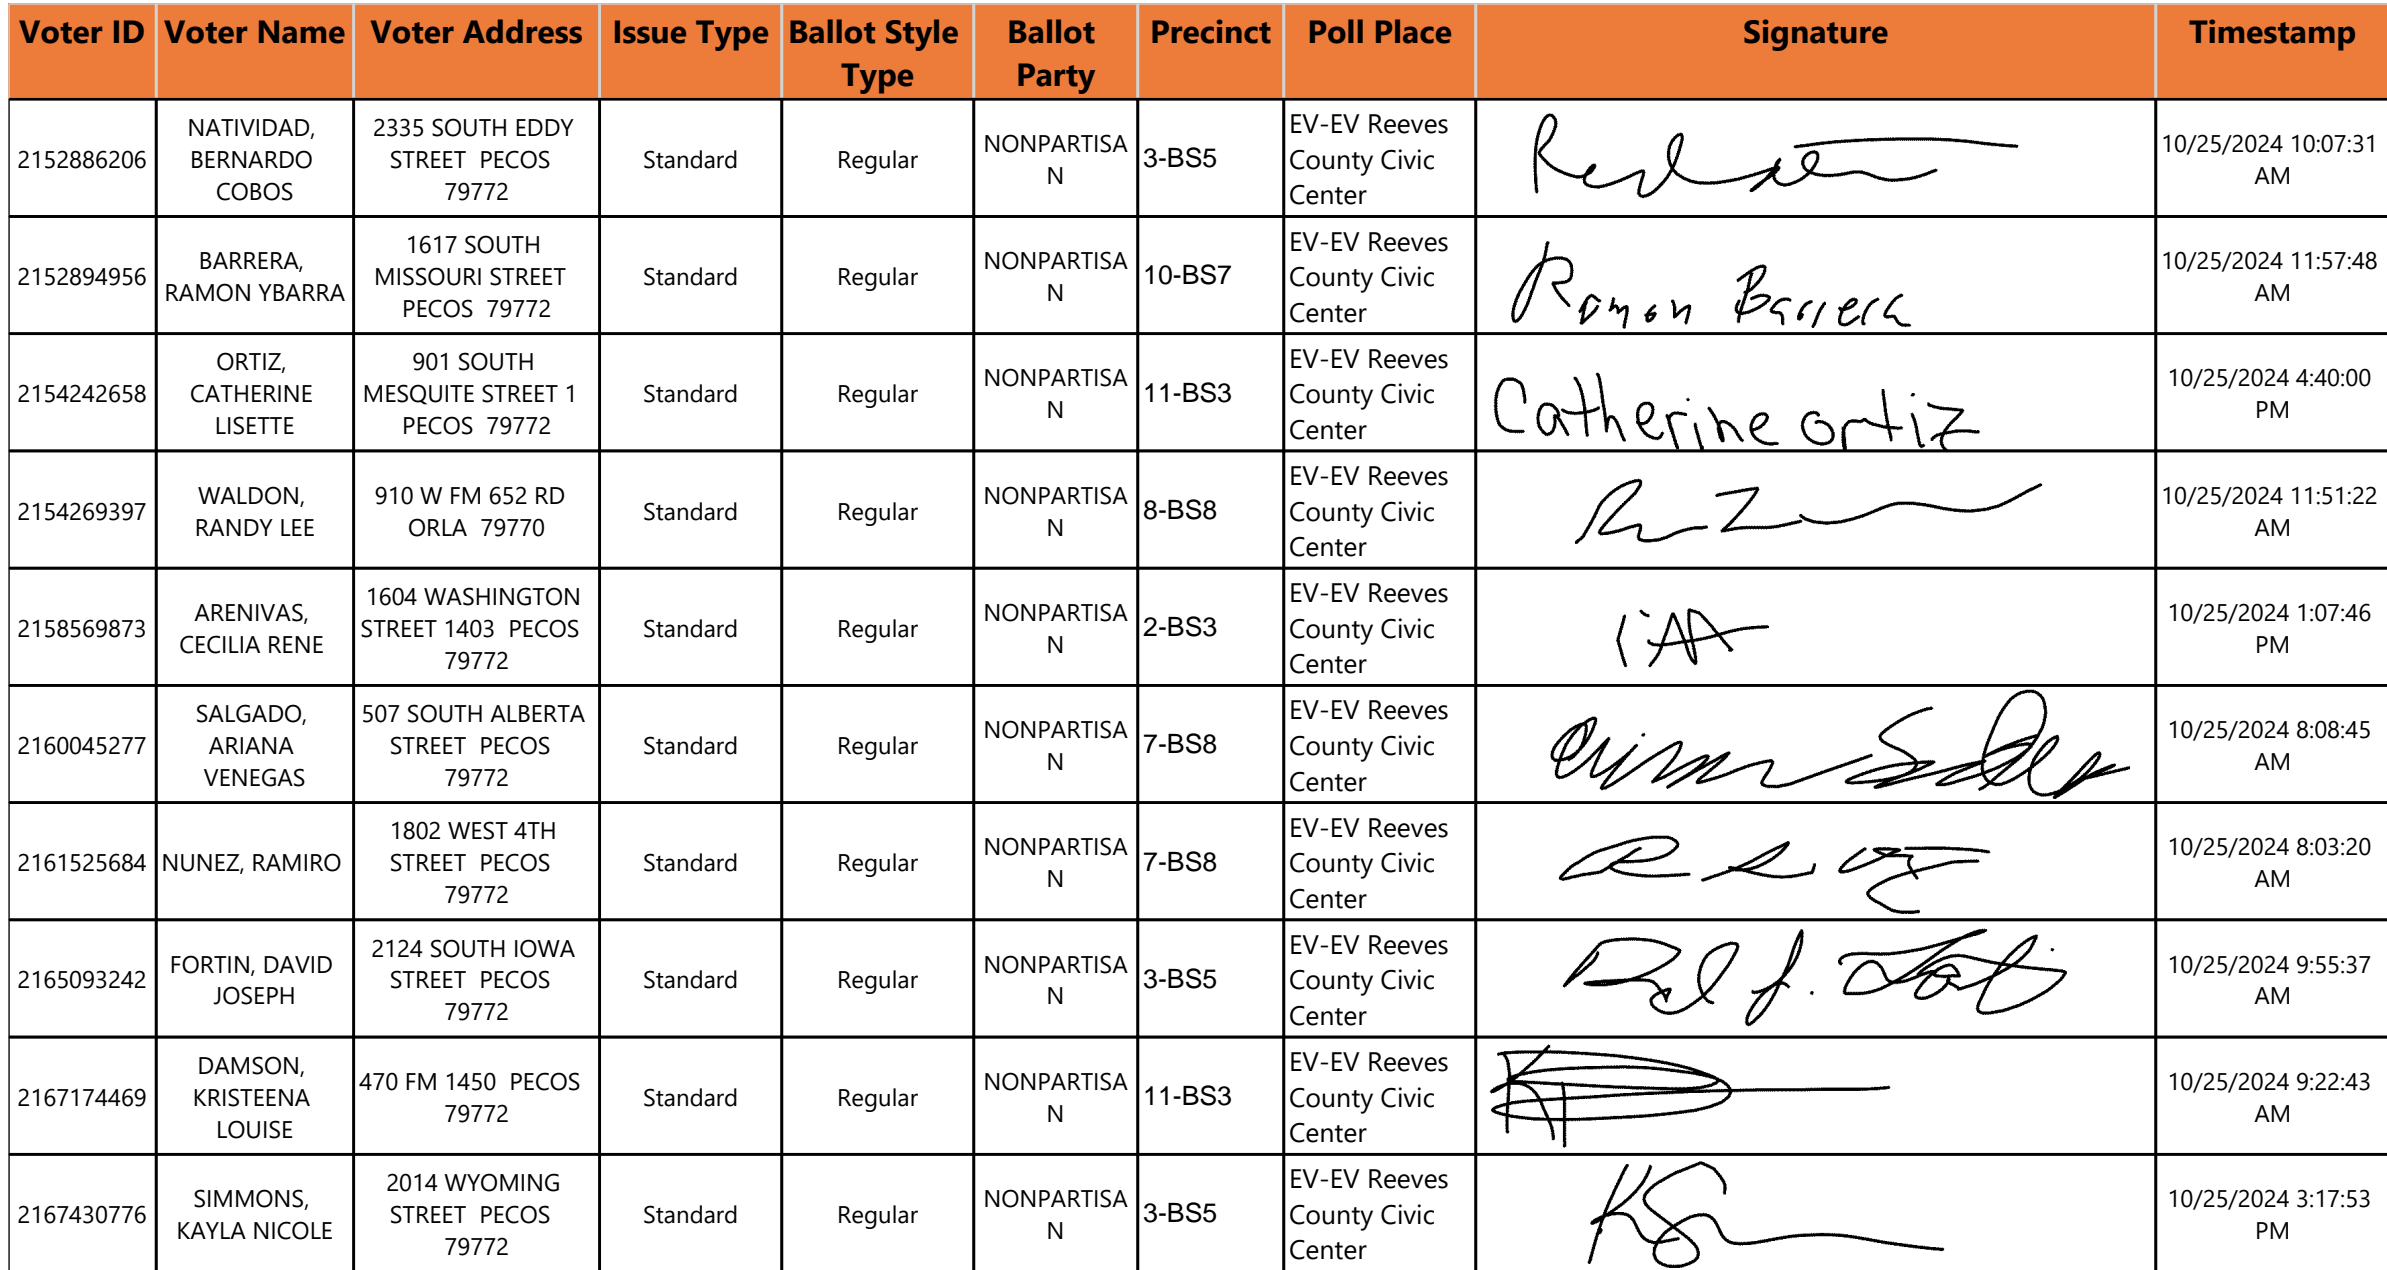 Voter ID Voter Name Voter Address Issue Type Ballot Style Type Ballot Party Precinct Poll Place Signature Timestamp
2152886206 NATIVIDAD, BERNARDO COBOS 2335 SOUTH EDDY STREET PECOS 79772 Standard Regular NONPARTISAN 3-BS5 EV-EV Reeves County Civic Center 10/25/2024 10:07:31 AM
2152894956 BARRERA, RAMON YBARRA 1617 SOUTH MISSOURI STREET PECOS 79772 Standard Regular NONPARTISAN 10-BS7 EV-EV Reeves County Civic Center Ramon Barrera 10/25/2024 11:57:48 AM
2154242658 ORTIZ, CATHERINE LISETTE 901 SOUTH MESQUITE STREET 1 PECOS 79772 Standard Regular NONPARTISAN 11-BS3 EV-EV Reeves County Civic Center Catherine Ortiz 10/25/2024 4:40:00 PM
2154269397 WALDON, RANDY LEE 910 W FM 652 RD ORLA 79770 Standard Regular NONPARTISAN 8-BS8 EV-EV Reeves County Civic Center 10/25/2024 11:51:22 AM
2158569873 ARENIVAS, CECILIA RENE 1604 WASHINGTON STREET 1403 PECOS 79772 Standard Regular NONPARTISAN 2-BS3 EV-EV Reeves County Civic Center 10/25/2024 1:07:46 PM
2160045277 SALGADO, ARIANA VENEGAS 507 SOUTH ALBERTA STREET PECOS 79772 Standard Regular NONPARTISAN 7-BS8 EV-EV Reeves County Civic Center 10/25/2024 8:08:45 AM
2161525684 NUNEZ, RAMIRO 1802 WEST 4TH STREET PECOS 79772 Standard Regular NONPARTISAN 7-BS8 EV-EV Reeves County Civic Center 10/25/2024 8:03:20 AM
2165093242 FORTIN, DAVID JOSEPH 2124 SOUTH IOWA STREET PECOS 79772 Standard Regular NONPARTISAN 3-BS5 EV-EV Reeves County Civic Center 10/25/2024 9:55:37 AM
2167174469 DAMSON, KRISTEENA LOUISE 470 FM 1450 PECOS 79772 Standard Regular NONPARTISAN 11-BS3 EV-EV Reeves County Civic Center 10/25/2024 9:22:43 AM
2167430776 SIMMONS, KAYLA NICOLE 2014 WYOMING STREET PECOS 79772 Standard Regular NONPARTISAN 3-BS5 EV-EV Reeves County Civic Center 10/25/2024 3:17:53 PM